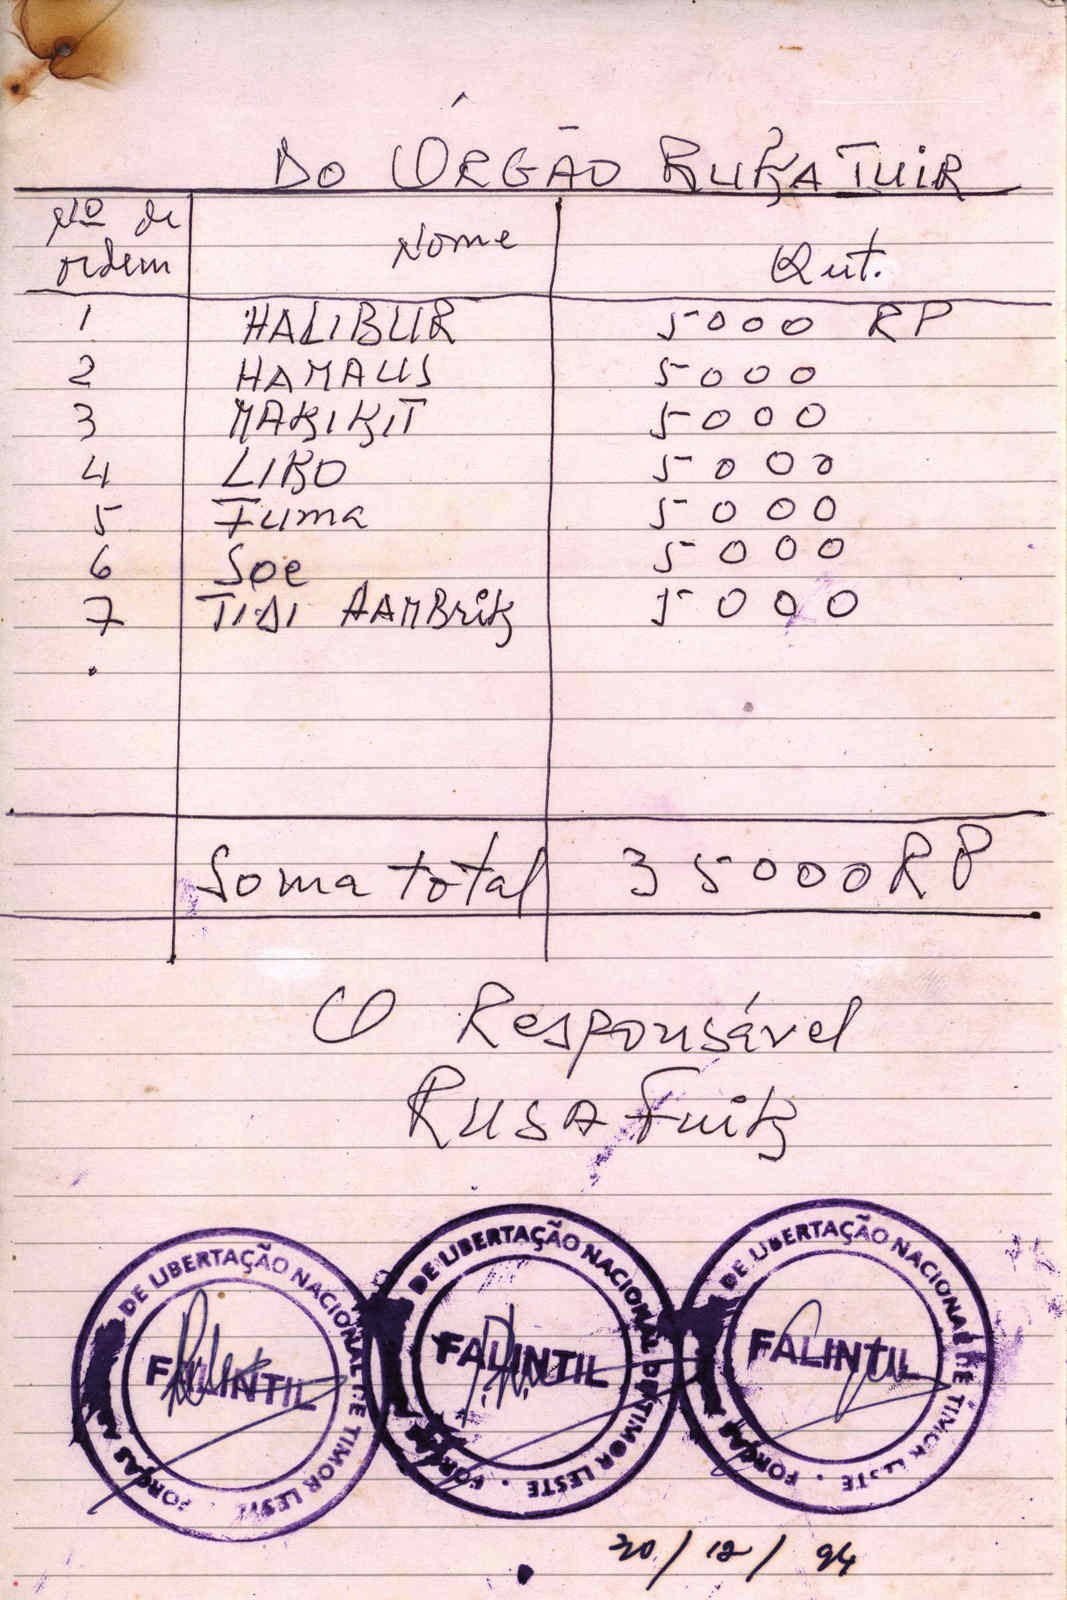 DO ÓRGÃO RUKA TUIR
Nº de ordem Nome Qut.
1 HALIBUR 5000 RP
2 HAMAUS 5000
3 MAKIKIT 5000
4 LIKO 5000
5 Fuma 5000
6 Soe 5000
7 TIDI AAMBrik 5000
Soma total 35000 RP
O Responsável
RUSA Fuik
FORÇAS DE LIBERTAÇÃO NACIONAL DE TIMOR LESTE
FALINTIL
FORÇAS DE LIBERTAÇÃO NACIONAL DE TIMOR LESTE
FALINTIL
FORÇAS DE LIBERTAÇÃO NACIONAL DE TIMOR LESTE
FALINTIL
/ 12 / 94